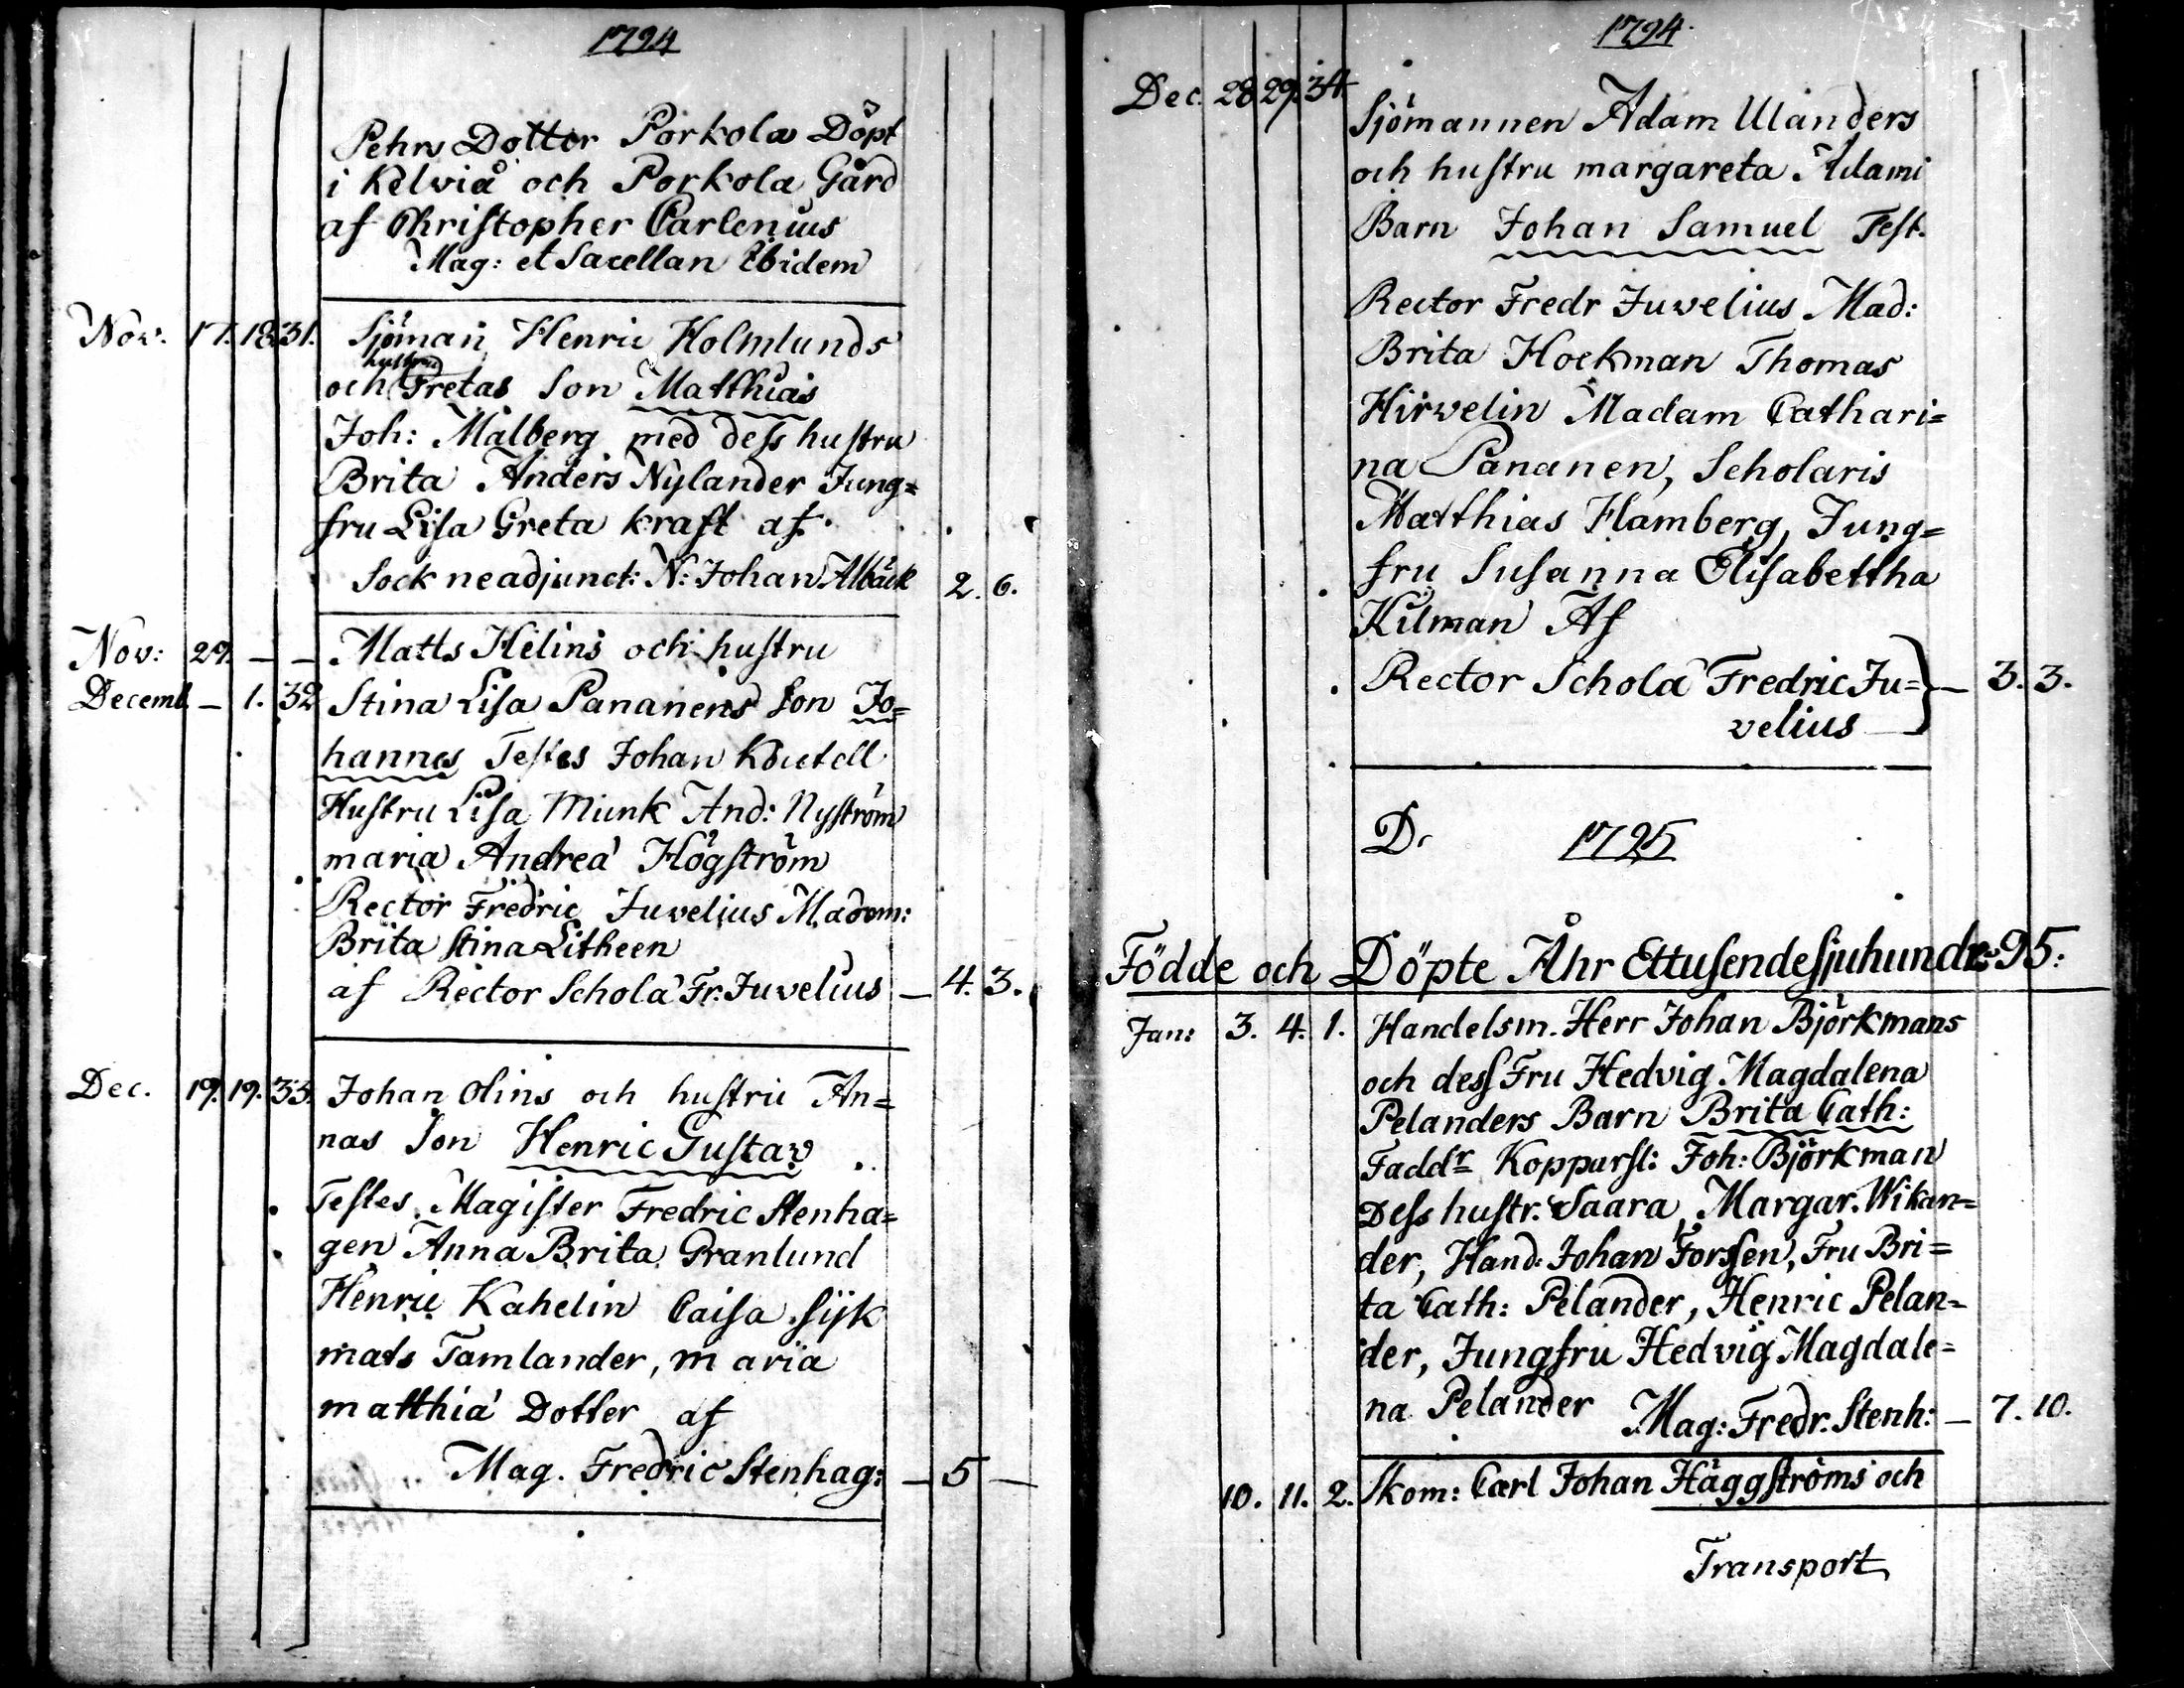 1794
Pehrs Dotter Porkola Döpt
i Kelviå och Porkola Gård
af Christopher Carlenius
Mag: et Sacellan Ibidem
Nov. 17. 18. 31. Sjöman Henric Holmlunds
hustru
och Gretas Son Matthias
Joh: Malberg med dess hustru
Brita Anders Nylander Jung=
fru Lisa Greta Kraft af
Sockneadjunct: N: Johan Albäck 2. 6.
Nov: 29. — — Matts Helins och hustru
Decemb. — 1. 32 Stina Lisa Pananens Son Jo=
hannes Testes Johan
Hustru Lisa Munk And: Nyström
maria Andreä Högström
Rector Fredric Juvelius Madem:
Brita Stina Litheen
af Rector Scholä Fr. Juvelius — 4. 3.
Dec. 19. 19. 33. Johan Olins och hustru An=
nas Son Henric Gustav
Testes. Magister Fredric Stenha=
gen Anna Brita Granlund
Henric Kahelin Caisa Sijk
mats Tamlander, maria
matthiä Dotter af
Mag. Fredric Stenhag: — 5 —
1794.
Dec. 28 29. 34 Sjömannen Adam Ulanders
och hustru margareta Adami
Barn Johan Samuel Test.
Rector Fredr Juvelius Mad:
Brita Hockman Thomas
Hirvelin Madam Cathari=
na Pananen, Scholaris
Matthias Flamberg, Jung=
fru Susanna Elisabettha
Kilman Af
Rector Scholä Fredric Ju= — 3. 3.
velius
D. 1795
Födde och Döpte Åhr Ettusendesjuhundr: 95:
Jan: 3. 4. 1. Handelsm. Herr Johan Björkmans
och dess Fru Hedvig Magdalena
Pelanders Barn Brita Cath:
Faddr Kopparsl: Joh: Björkman
Dess hustr. Saara Margar. Wikan=
der, Hand: Johan Forssen, Fru Bri=
ta Cath: Pelander, Henric Pelan=
der, Jungfru Hedvig Magdale=
na Pelander Mag: Fredr. Stenh: — 7. 10.
10. 11. 2. Skom: Carl Johan Häggströms och
Transport